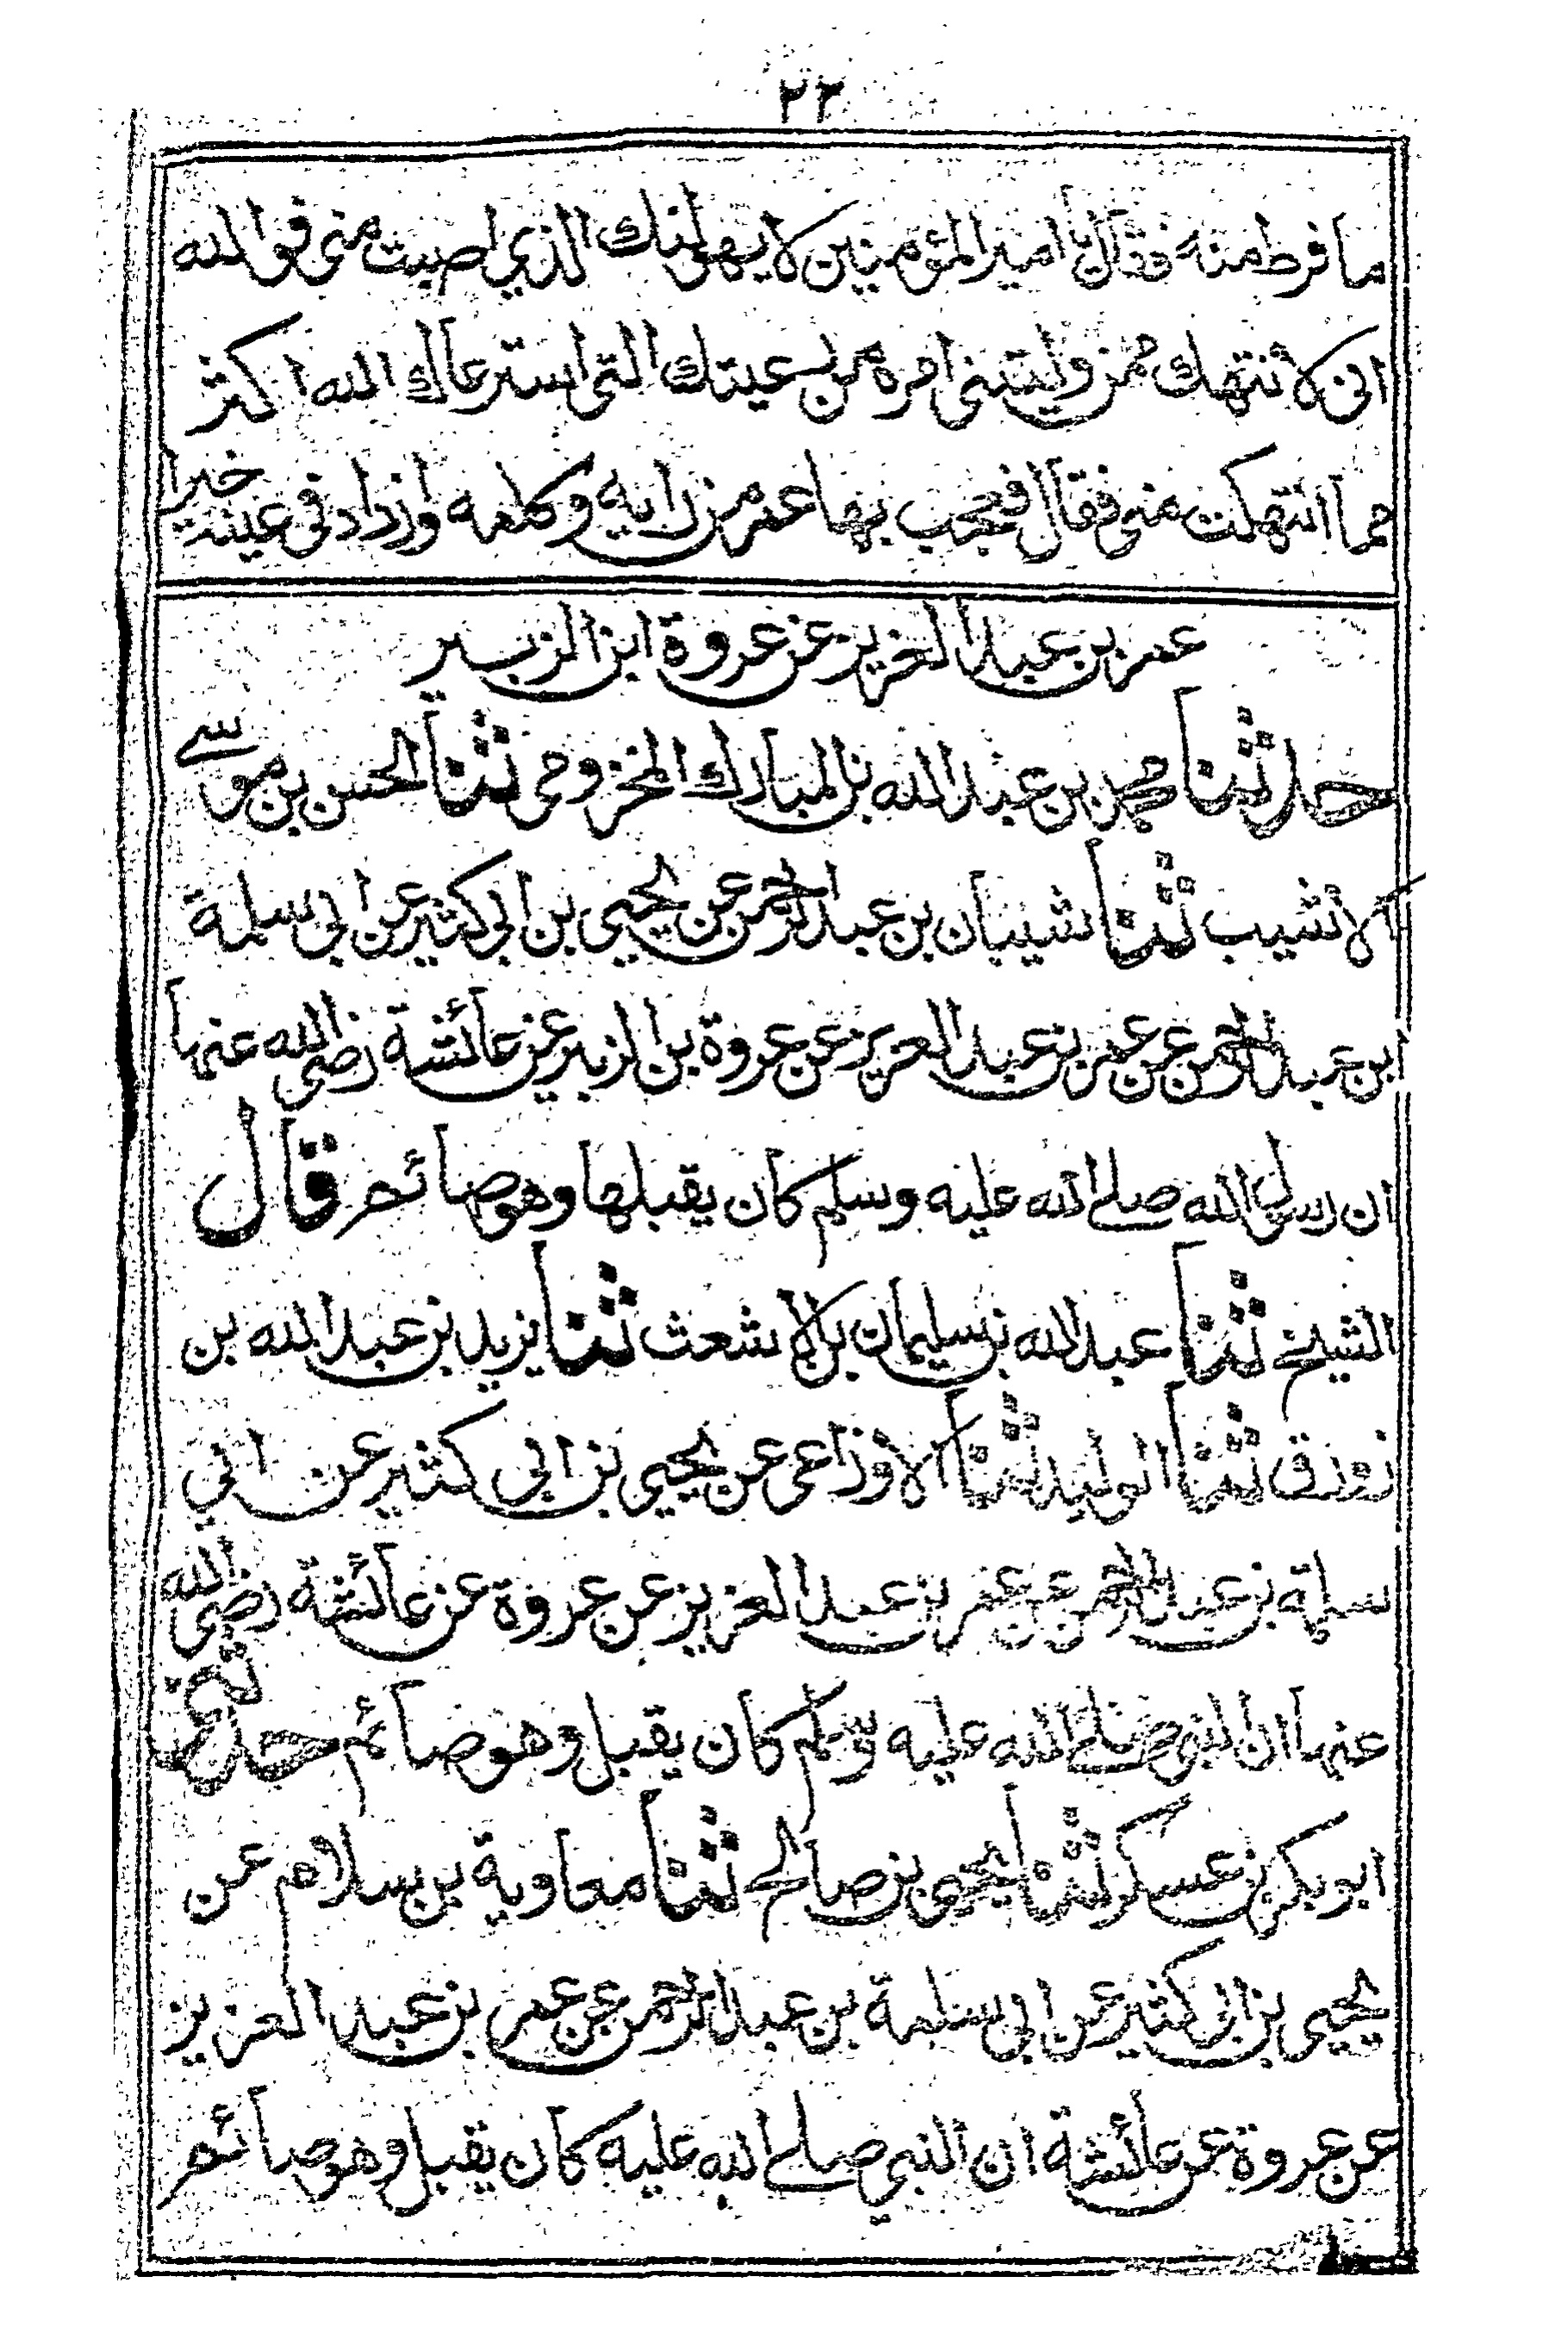 ٢٣
ما فرط منه فقال يا امير المؤمنين لا يهولنك الذي اصبت مني فوالله
اني لا نتهك ممن وليتني امره من رعيتك التي استرعاك الله اكثر
مما انتهكت مني فقال فعجب بها عمر من رايه وكلمه وازداد في عينه خيرا
عمر بن عبد العزيز عن عروة ابن الزبير
حدثنا محمد بن عبد الله بن المبارك المخزومي ثنا الحسن بن موسى
الاشيب ثنا شيبان بن عبد الرحمن عن يحيى بن ابي كثير عن ابي سلمة
ابن عبد الرحمن عن عمر بن عبد العزيز عن عروة بن الزبير عن عائشة رضي الله عنها
ان رسول الله صلى الله عليه وسلم كان يقبلها وهو صائم قال
الشيخ ثنا عبد الله بن سليمان بن الاشعث ثنا يزيد بن عبد الله بن
زريق ثنا الوليد ثنا الاوزاعي عن يحيى بن ابي كثير عن ابي
سلمة بن عبد الرحمن عن عمر بن عبد العزيز عن عروة عن عائشة رضي الله
عنها ان النبي صلى الله عليه وسلم كان يقبل وهو صائم حدثني
ابو بكر بن عسكر ثنا يحيى بن صالح ثنا معاوية بن سلام عن
يحيى بن ابي كثير عن ابي سلمة بن عبد الرحمن عن عمر بن عبد العزيز
عن عروة عن عائشة ان النبي صلى الله عليه كان يقبل وهو صائم